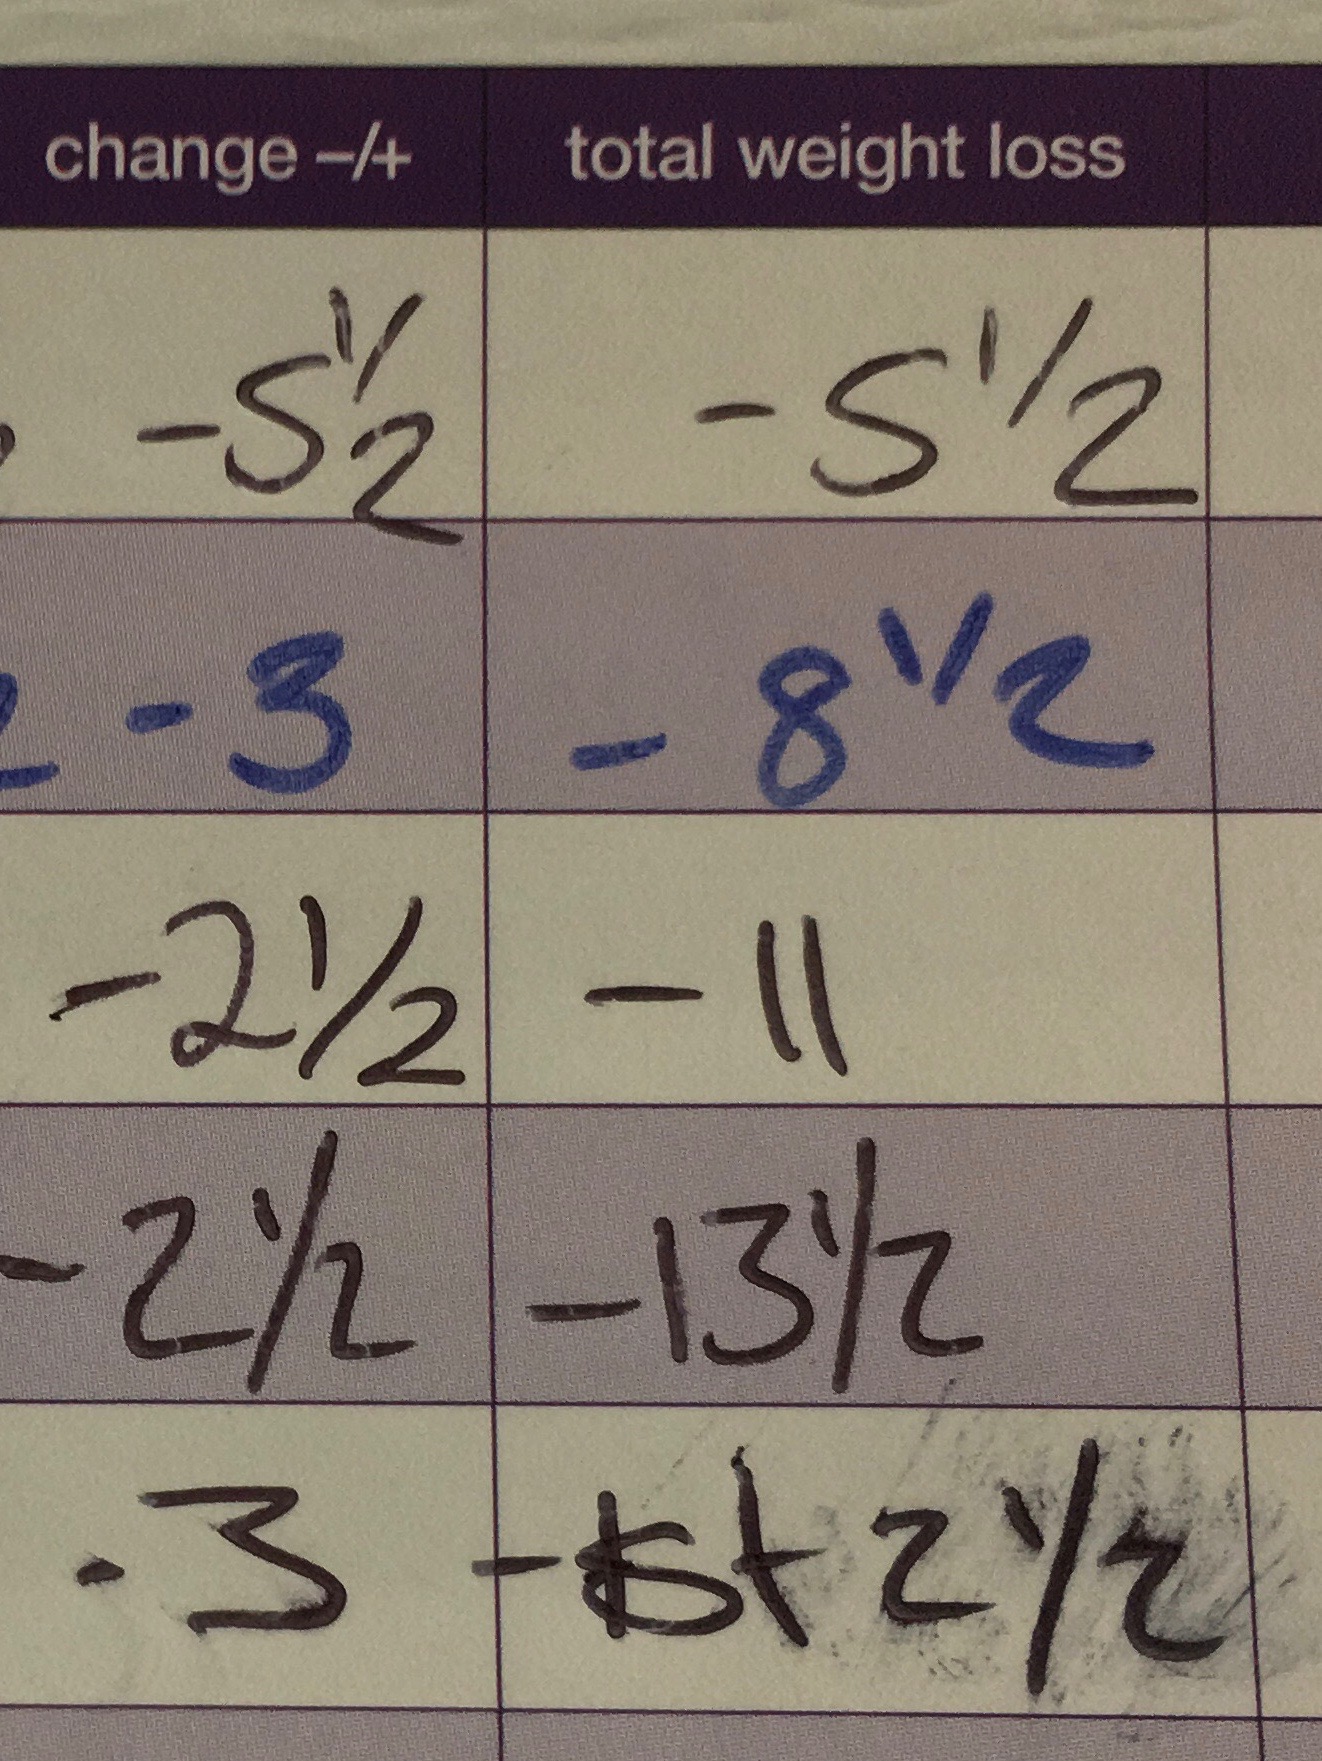 change –/+ total weight loss
-5 1/2 -5 1/2
-3 - 8 1/2
-2 1/2 - 11
-2 1/2 -13 1/2
-3 -1st 2 1/2